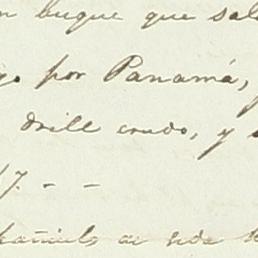 buque que sal
por Panamá,
drill crudo, y
17. - -
de seda